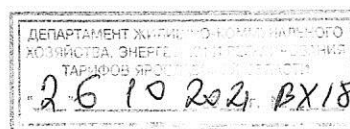 ДЕПАРТАМЕНТ ЖИЛИЩНО-КОММУНАЛЬНОГО
ХОЗЯЙСТВА, ЭНЕРГЕ РЕГУЛИРОВАНИЯ
ТАРИФОВ ЯРОС
26 10 2021 ВХ18